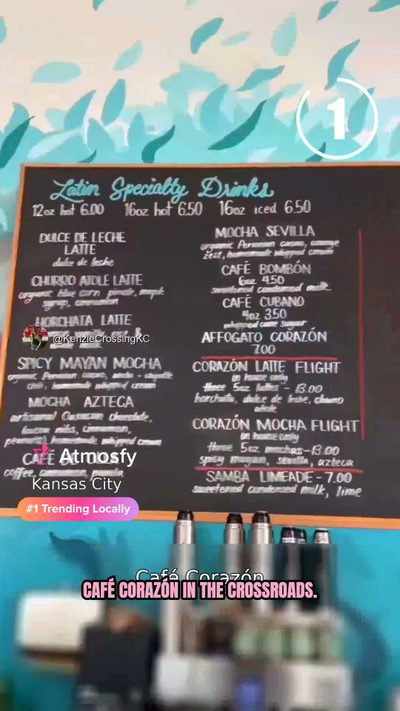 1
Latin Specialty Drinks
12oz hot 6.00 16oz hot 6.50 16oz iced 6.50
DULCE DE LECHE
LATTE
dulce de leche
CHURRO ATOLE LATTE
organic blue corn, pinole, maple
syrup, cinnamon
HORCHATA LATTE
@KenzieCrossingKC
SPICY MAYAN MOCHA
organic Peruvian cacao,
chili, homemade whipped cream
MOCHA AZTECA
artisanal Oaxacan chocolate,
homemade whipped cream
CAFÉ
coffee, cinnamon,
MOCHA SEVILLA
organic Peruvian cacao, orange
zest, homemade whipped cream
CAFÉ BOMBÓN
6oz 4.50
sweetened condensed milk
CAFÉ CUBANO
4oz 3.50
whipped cane sugar
AFFOGATO CORAZÓN
7.00
CORAZÓN LATTE FLIGHT
in house only
three 5oz lattes - 13.00
horchata, dulce de leche, churro
atole
CORAZÓN MOCHA FLIGHT
in house only
three 5oz mochas - 13.00
spicy mayan, sevilla, azteca
SAMBA LIMEADE - 7.00
sweetened condensed milk, lime
Atmosfy
Kansas City
#1 Trending Locally
Café Corazón
CAFÉ CORAZÓN IN THE CROSSROADS.